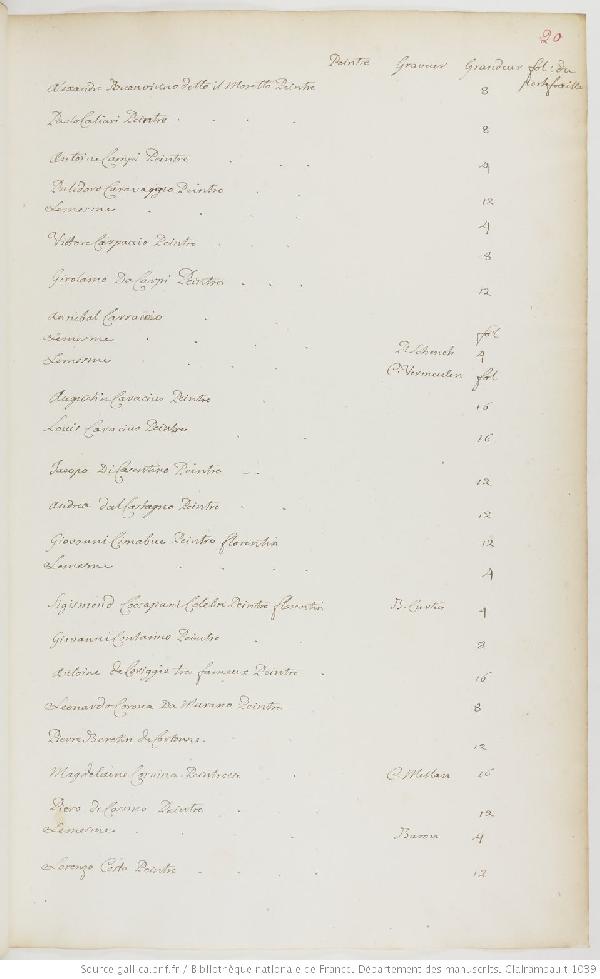 20
Peintre Graveur Grandeur fol: du
portefeuille
Alexandre Buonvicino detto il Moretto Peintre 8
Paolo Caliari Peintre 8
Antoine Campi Peintre 4
Pulidoro Caravaggio Peintre 12
Lemesme 4
Vittore Carpaccio Peintre 8
Girolamo Da Carpi Peintre 12
Annibal Carraccio fol
Lemesme P. Schenck 4
Lemesme C. Vermeulen fol
Augustin Caracius Peintre 16
Louis Caracius Peintre 16
Jacopo Di Casentino Peintre 12
Andrea dal Castagno Peintre 12
Giovanni Cimabue Peintre florentin 12
Lemesme 4
Sigismond Coccapani Celebre Peintre florentin B. Curtis 4
Giovanni Contarino Peintre 8
Antoine de Coreggio tres fameux Peintre 16
Leonardo Corona Da Murano Peintre 8
Pierre Beretin de Cortonne. 12
Magdelaine Corvina Peintresse C. Mellan 16
Piero di Cosimo Peintre 12
Lemesme Baron 4
Lorenzo Costa Peintre 12
Source gallica.bnf.fr / Bibliothèque nationale de France. Département des manuscrits. Clairambault 1039